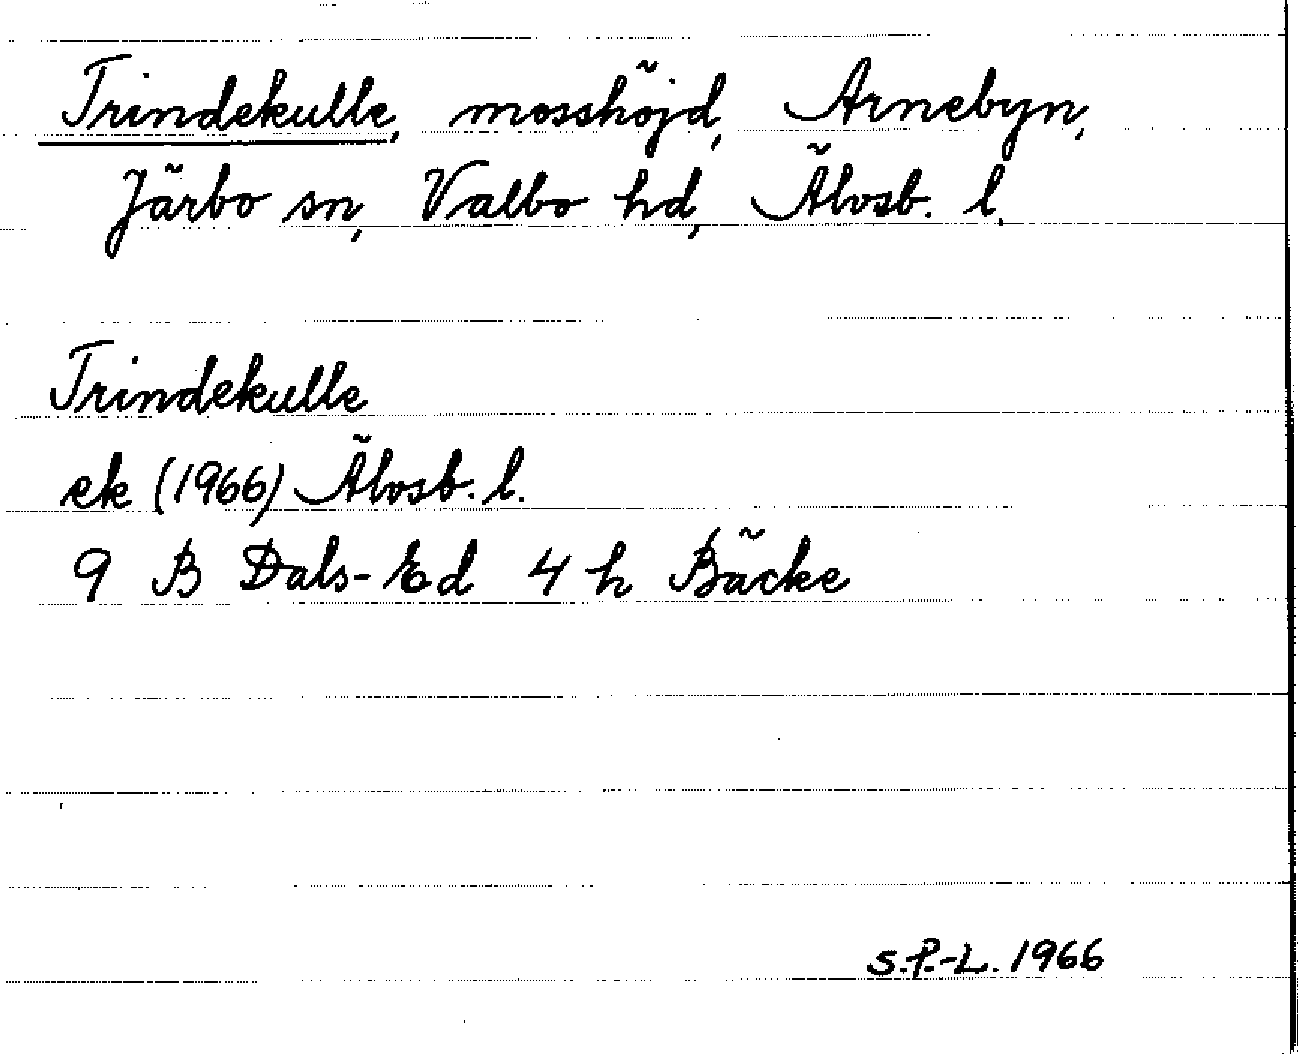 Trindekulle, mosshöjd, Arnebyn,
Järbo sn, Valbo hd, Älvsb. l.
Trindekulle
ek (1966) Älvsb. l.
9 B Dals-Ed 4 h Bäcke
S.P.-L. 1966